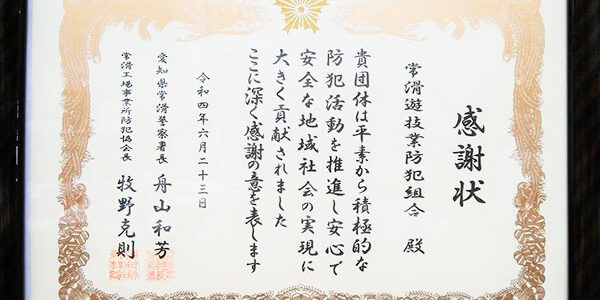 感謝状
常滑遊技業防犯組合 殿
貴団体は平素から積極的な
防犯活動を推進し安心で
安全な地域社会の実現に
大きく貢献されました
ここに深く感謝の意を表します
令和四年六月二十三日
愛知県常滑警察署長 舟山和芳
常滑工場事業所防犯協会長 牧野克則